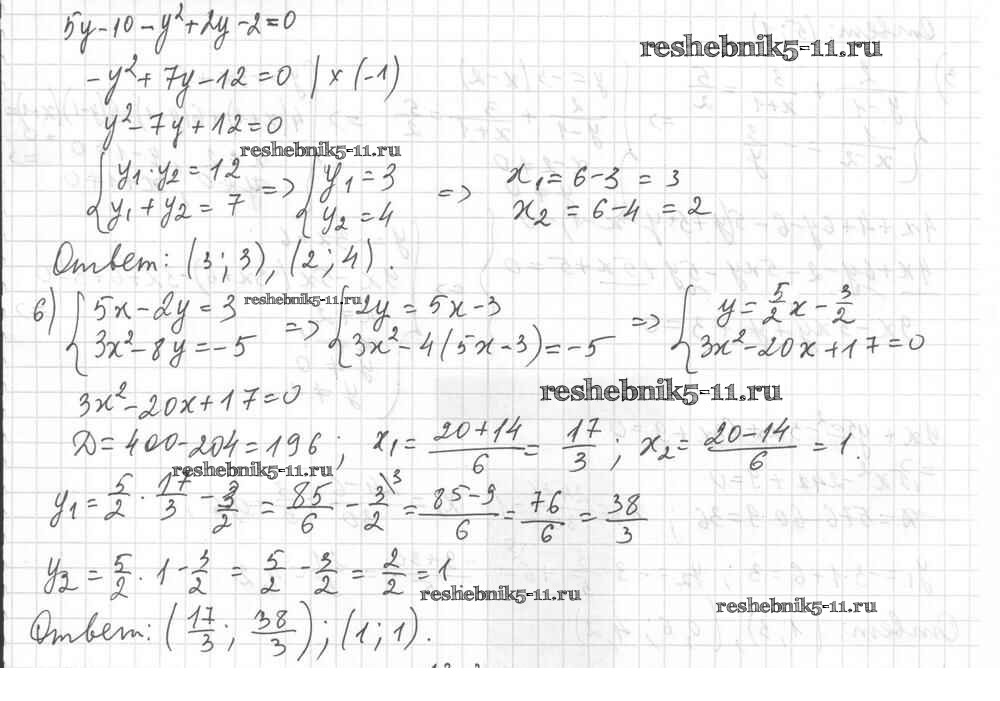 5y-10-y²+2y-2=0
reshebnik5-11.ru
-y²+7y-12=0 | × (-1)
y²-7y+12=0
reshebnik5-11.ru
{ y₁·y₂=12 y₁+y₂=7 => { y₁=3 y₂=4 => x₁=6-3=3 x₂=6-4=2
Ответ: (3;3), (2;4).
6) { 5x-2y=3 3x²-8y=-5 => { 2y=5x-3 3x²-4(5x-3)=-5 => { y=5/2x-3/2 3x²-20x+17=0
reshebnik5-11.ru
3x²-20x+17=0
reshebnik5-11.ru
D=400-204=196; x₁=(20+14)/6=17/3; x₂=(20-14)/6=1.
reshebnik5-11.ru
y₁=5/2·17/3-3/2=85/6-3/2\³=(85-9)/6=76/6=38/3
y₂=5/2·1-3/2=5/2-3/2=2/2=1
reshebnik5-11.ru
reshebnik5-11.ru
Ответ: (17/3; 38/3); (1;1).